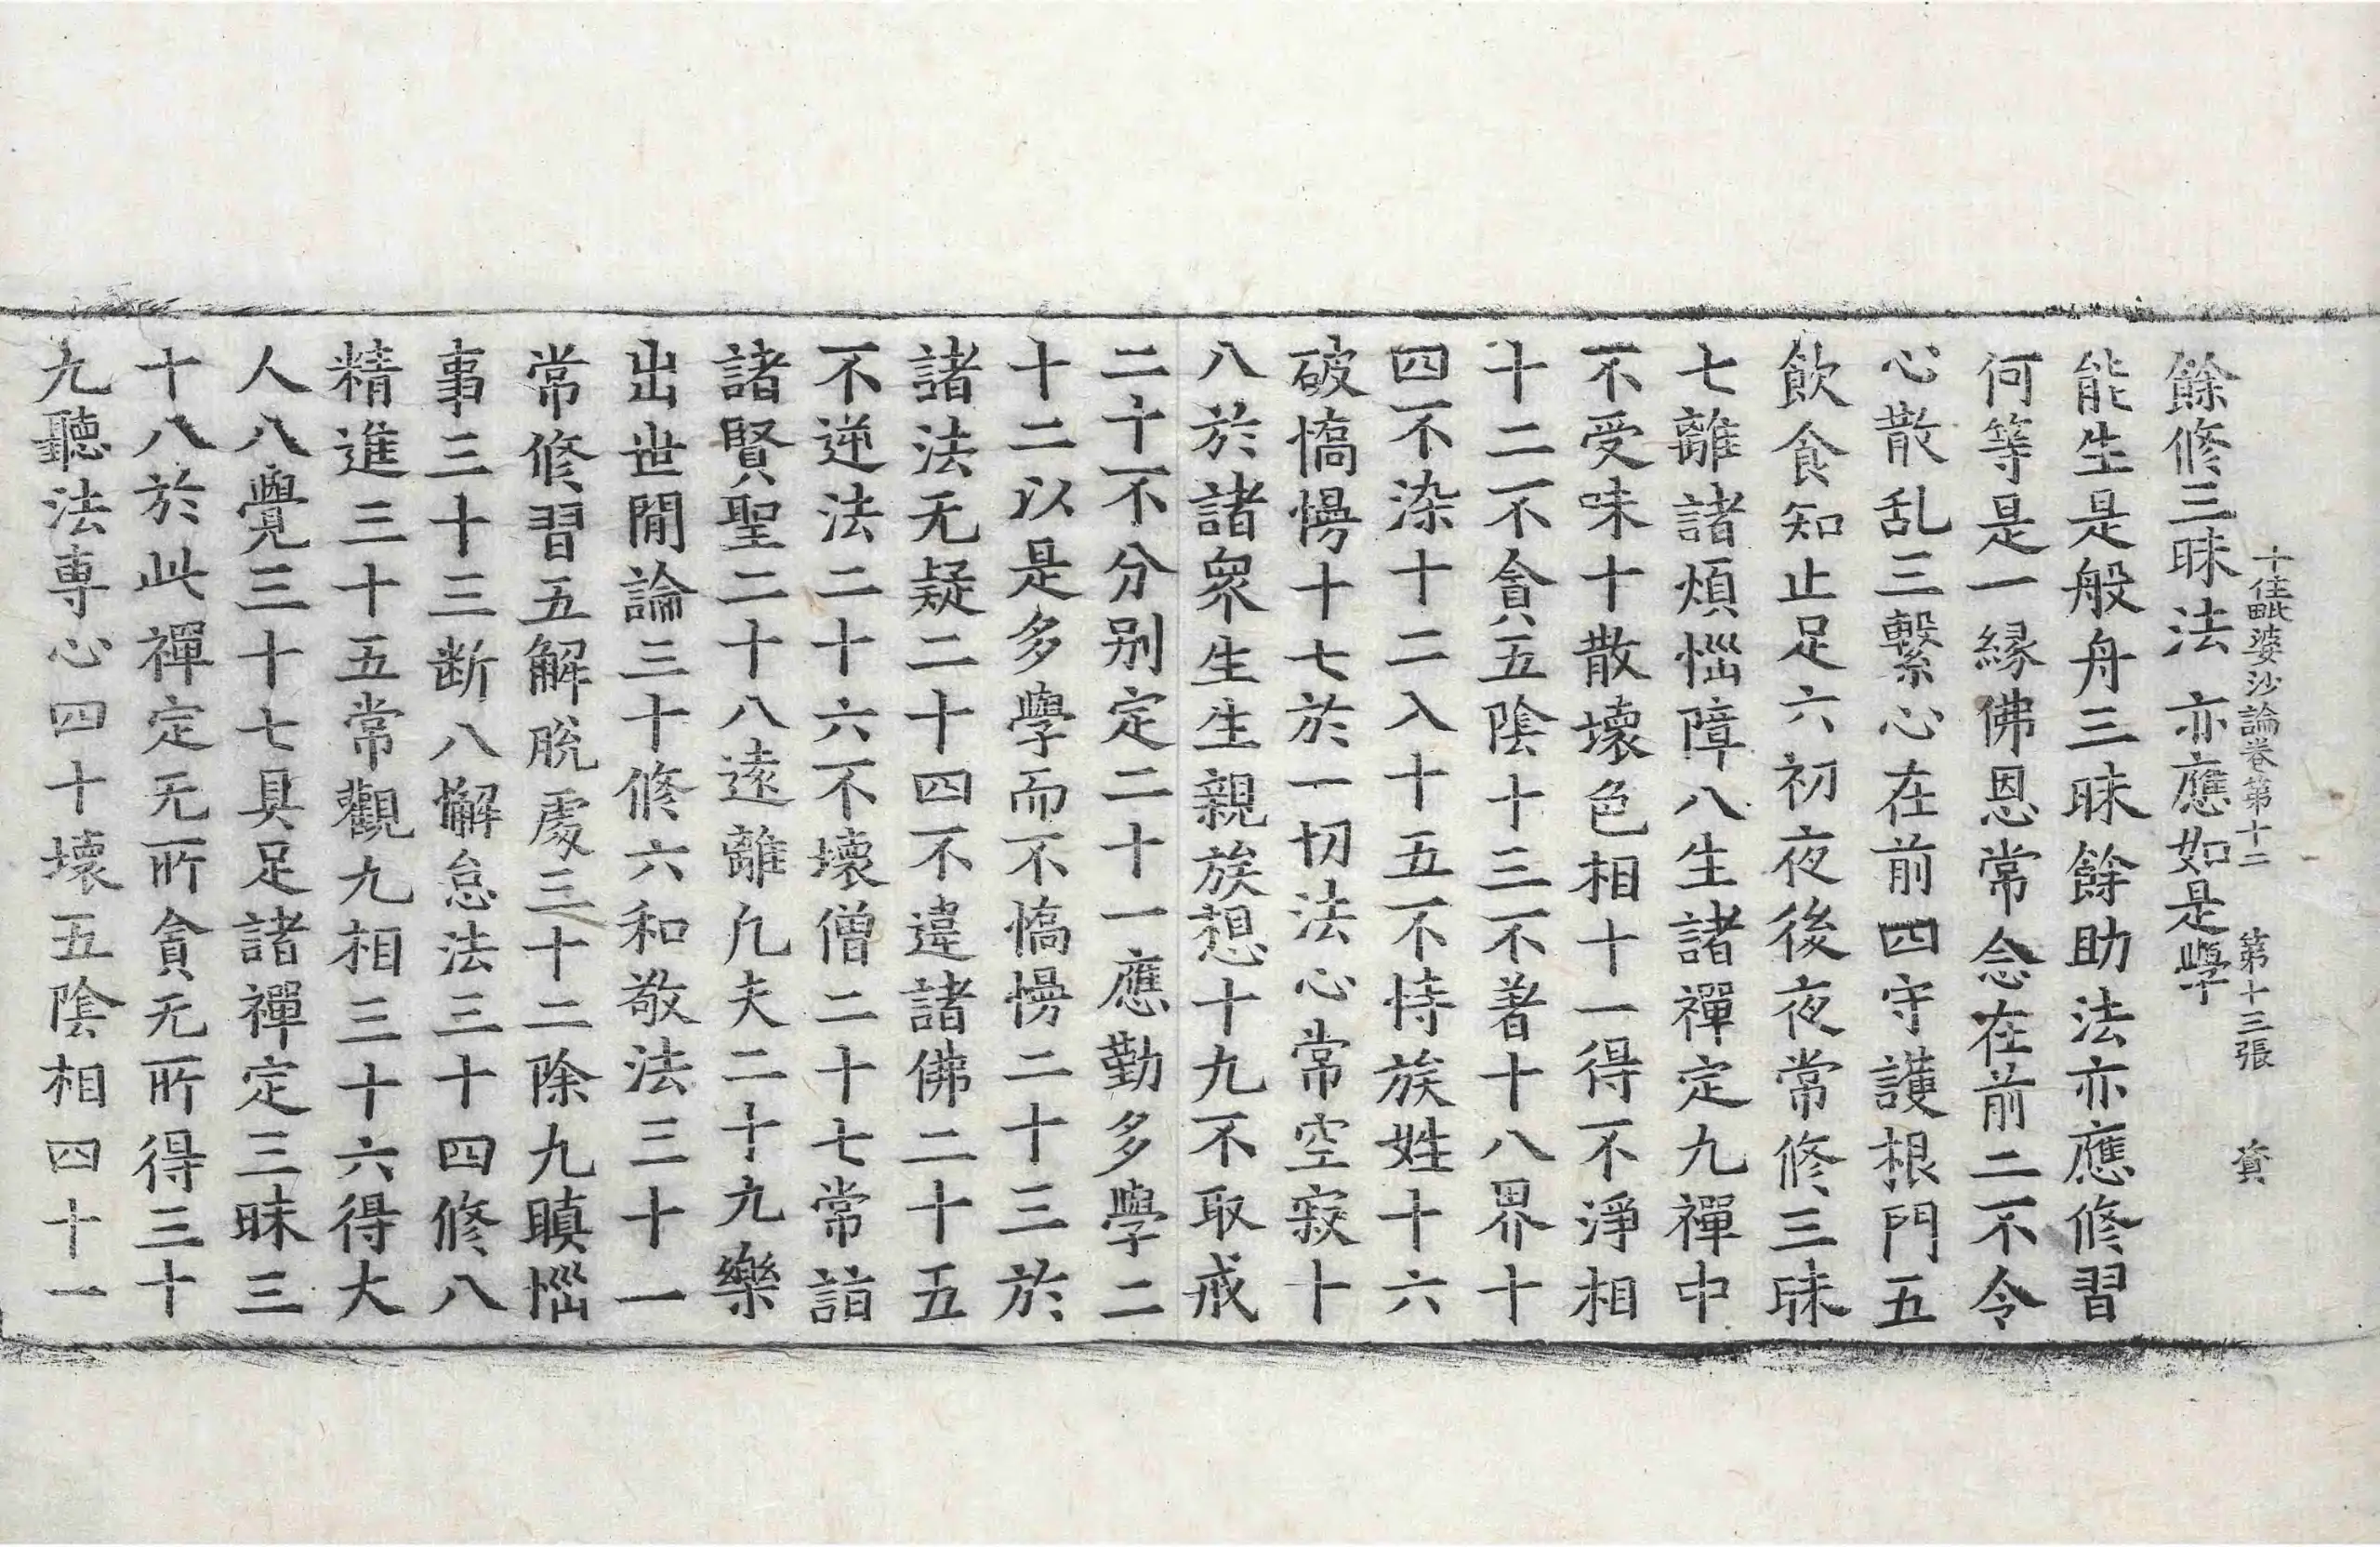 十住毗婆沙論卷第十二 第十三張 資
餘修三昧法 亦應如是學
能生是般舟三昧餘助法亦應修習
何等是一緣佛恩常念在前二不令
心散乱三繫心在前四守護根門五
飲食知止足六初夜後夜常修三昧
七離諸煩惱障八生諸禪定九禪中
不受味十散壞色相十一得不淨相
十二不貪五陰十三不著十八界十
四不染十二入十五不恃族姓十六
破憍慢十七於一切法心常空寂十
八於諸衆生生親族想十九不取戒
二十不分別定二十一應勤多學二
十二以是多學而不憍慢二十三於
諸法无疑二十四不違諸佛二十五
不逆法二十六不壞僧二十七常詣
諸賢聖二十八遠離凡夫二十九樂
出世閒論三十修六和敬法三十一
常修習五解脫處三十二除九瞋惱
事三十三断八懈怠法三十四修八
精進三十五常觀九相三十六得大
人八覺三十七具足諸禪定三昧三
十八於此禪定无所貪无所得三十
九聽法専心四十壞五陰相四十一